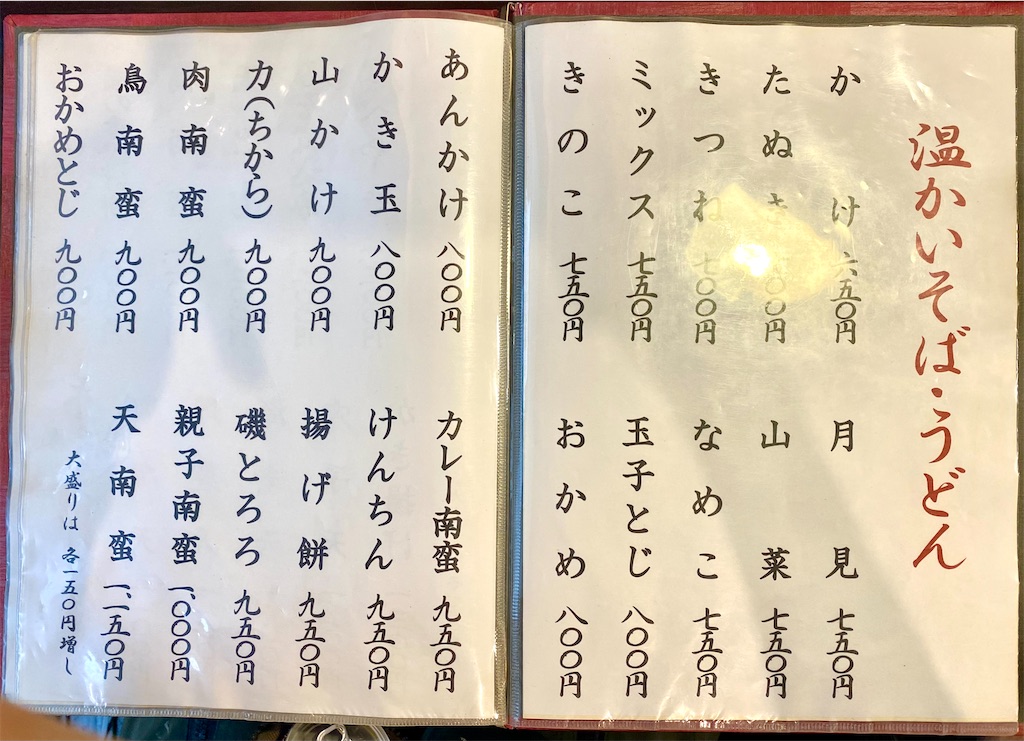 温かいそば・うどん
かけ 六五〇円
たぬき 七〇〇円
きつね 七〇〇円
ミックス 七五〇円
きのこ 七五〇円
月見 七五〇円
山菜 七五〇円
なめこ 七五〇円
玉子とじ 八〇〇円
おかめ 八〇〇円
あんかけ 八〇〇円
かき玉 八〇〇円
山かけ 九〇〇円
力(ちから) 九〇〇円
肉南蛮 九〇〇円
鳥南蛮 九〇〇円
おかめとじ 九〇〇円
カレー南蛮 九五〇円
けんちん 九五〇円
揚げ餅 九五〇円
磯とろろ 九五〇円
親子南蛮 一、〇〇〇円
天南蛮 一、一五〇円
大盛りは 各一五〇円増し